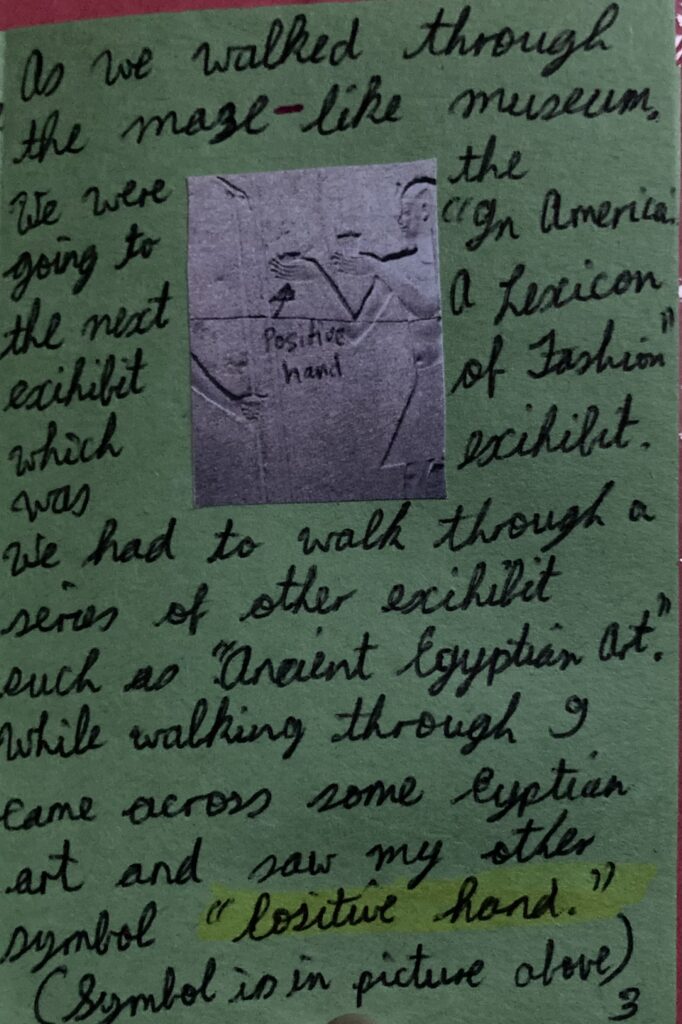 As we walked through
the maze-like museum.
We were
going to
the next
exihibit
which
was
Positive
hand
the
"In America:
A Lexicon
of Fashion"
exihibit.
We had to walk through a
series of other exihibit
such as "Ancient Egyptian Art."
While walking through I
came across some Eyptian
art and saw my other
symbol "Positive hand."
(Symbol is in picture above)
3